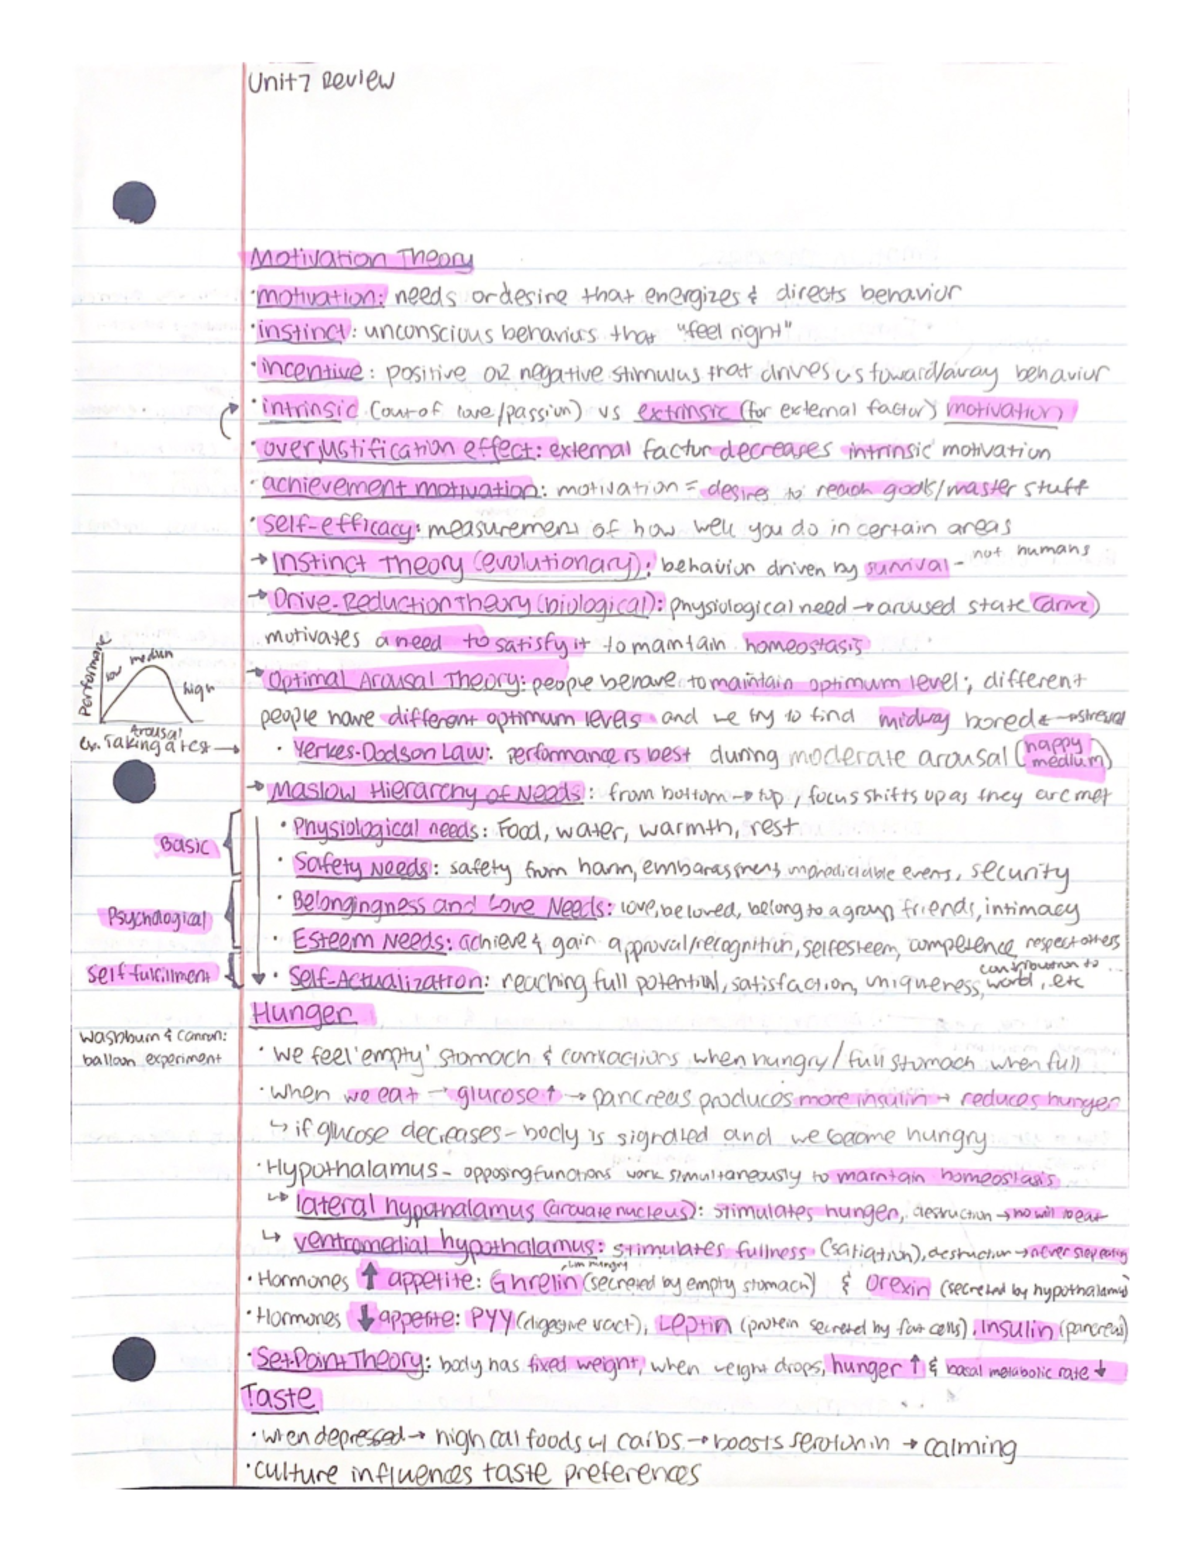 Unit 7 Review
Motivation Theory
·motivation: needs or desire that energizes & directs behavior
·instinct: unconscious behaviors that "feel right"
·incentive: positive or negative stimulus that drives us toward/away behavior
·intrinsic (out of love/passion) vs extrinsic (for external factor) motivation
·overjustification effect: external factor decreases intrinsic motivation
·achievement motivation: motivation = desires to reach goals/master stuff
·self-efficacy: measurement of how well you do in certain areas
→Instinct Theory (evolutionary): behavior driven by survival - not humans
→Drive-Reduction Theory (biological): physiological need → aroused state (drive)
motivates a need to satisfy it to maintain homeostasis
Performance low medium high
Arousal
ex. Taking a test →
→Optimal Arousal Theory: people behave to maintain optimum level; different
people have different optimum levels and we try to find midway bored ← → stressed
· Yerkes-Dodson Law: performance is best during moderate arousal (happy medium)
→Maslow Hierarchy of Needs: from bottom → top, focus shifts up as they are met
Basic
· Physiological needs: Food, water, warmth, rest
· Safety Needs: safety from harm, embarassment, unpredictable events, security
Psychological
· Belongingness and Love Needs: love, be loved, belong to a group, friends, intimacy
· Esteem Needs: achieve & gain approval/recognition, selfesteem, competence, respect others
Self-fulfillment
· Self-Actualization: reaching full potential, satisfaction, uniqueness, contribution to world, etc
Hunger
Washburn & Cannon:
balloon experiment
· we feel 'empty' stomach & contractions when hungry/full stomach when full
·when we eat → glucose ↑ → pancreas produces more insulin → reduces hunger
↳ if glucose decreases - body is signaled and we become hungry
·Hypothalamus - opposing functions work simultaneously to maintain homeostasis
↳ lateral hypothalamus (arcuate nucleus): stimulates hunger, destruction → no will to eat
↳ ventromedial hypothalamus: stimulates fullness (satiation), destruction → never stop eating
·Hormones ↑ appetite: Ghrelin (secreted by empty stomach) & Orexin (secreted by hypothalamus)
·Hormones ↓ appetite: PYY (digestive tract), Leptin (protein secreted by fat cells), Insulin (pancreas)
·Set-Point Theory: body has fixed weight, when weight drops, hunger ↑ & basal metabolic rate ↓
Taste
·when depressed → high cal foods w/ carbs → boosts serotonin → calming
·culture influences taste preferences